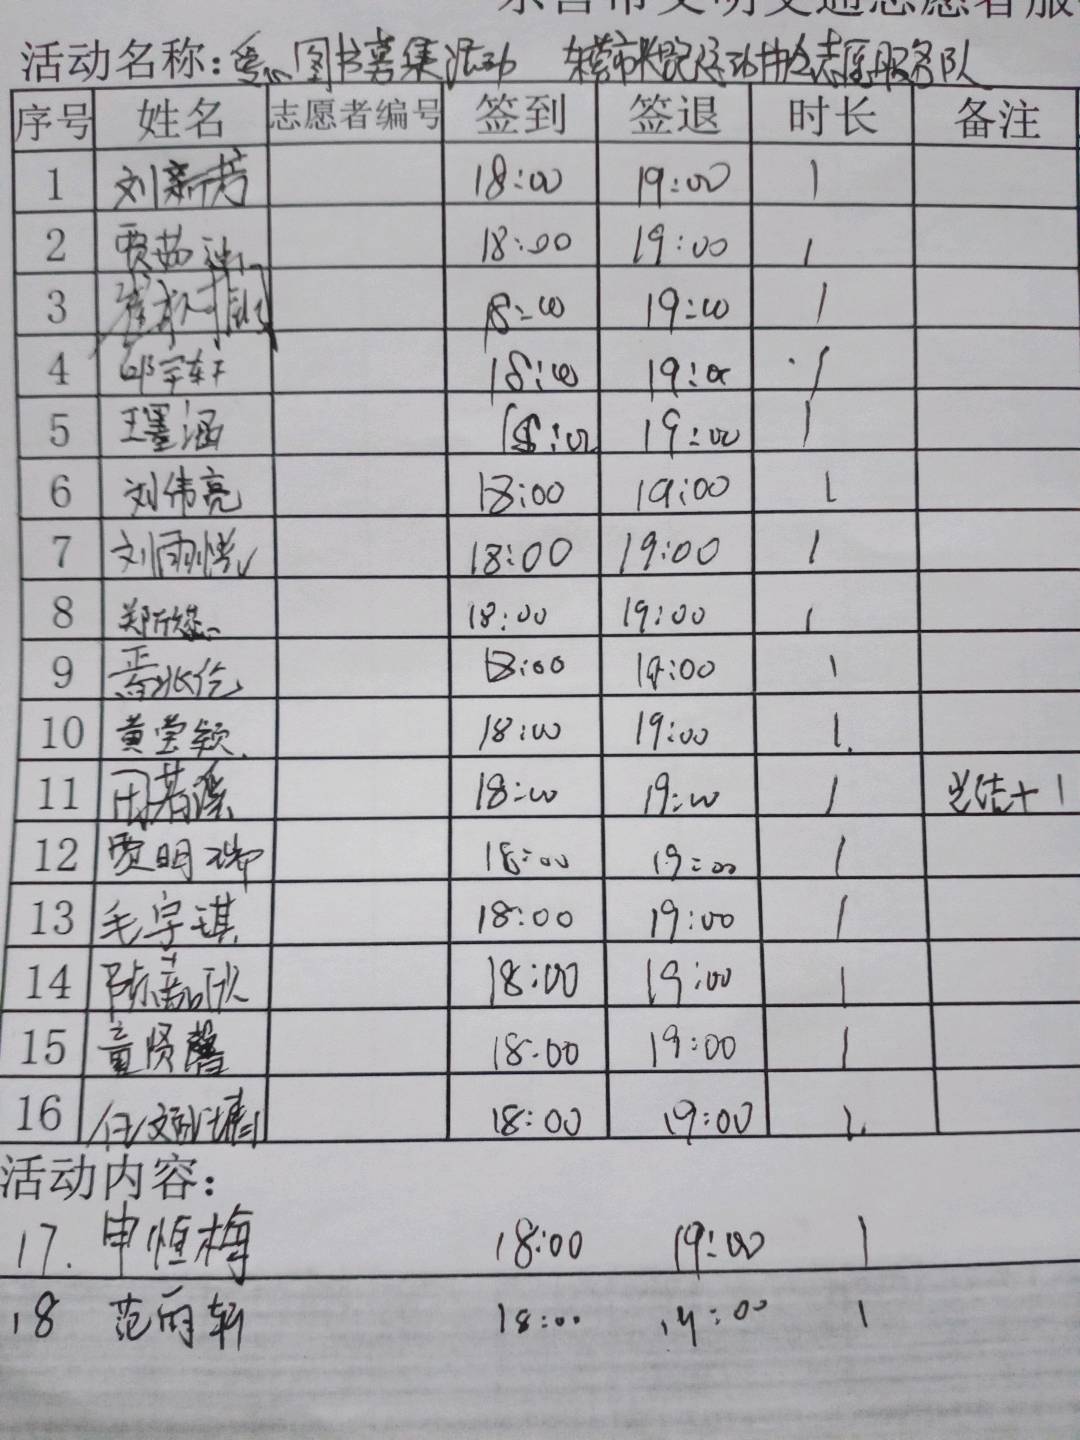 东营市文明交通志愿者服
活动名称:爱心图书募集活动 东营市长跑运动协会志愿服务队
序号 姓名 志愿者编号 签到 签退 时长 备注
1 刘新芳 18:00 19:00 1
2 贾茹 18:00 19:00 1
3 18:00 19:00 1
4 邱宇轩 18:00 19:00 1
5 王墨涵 18:00 19:00 1
6 刘伟亮 18:00 19:00 1
7 刘雨 18:00 19:00 1
8 郑欣 18:00 19:00 1
9 18:00 19:00 1
10 黄莹颖 18:00 19:00 1
11 田若溪 18:00 19:00 1 总结+1
12 贾明瑞 18:00 19:00 1
13 毛宇琪 18:00 19:00 1
14 陈嘉欣 18:00 19:00 1
15 童贤馨 18:00 19:00 1
16 任文 18:00 19:00 1
活动内容:
17. 申恒梅 18:00 19:00 1
18 范雨轩 18:00 19:00 1